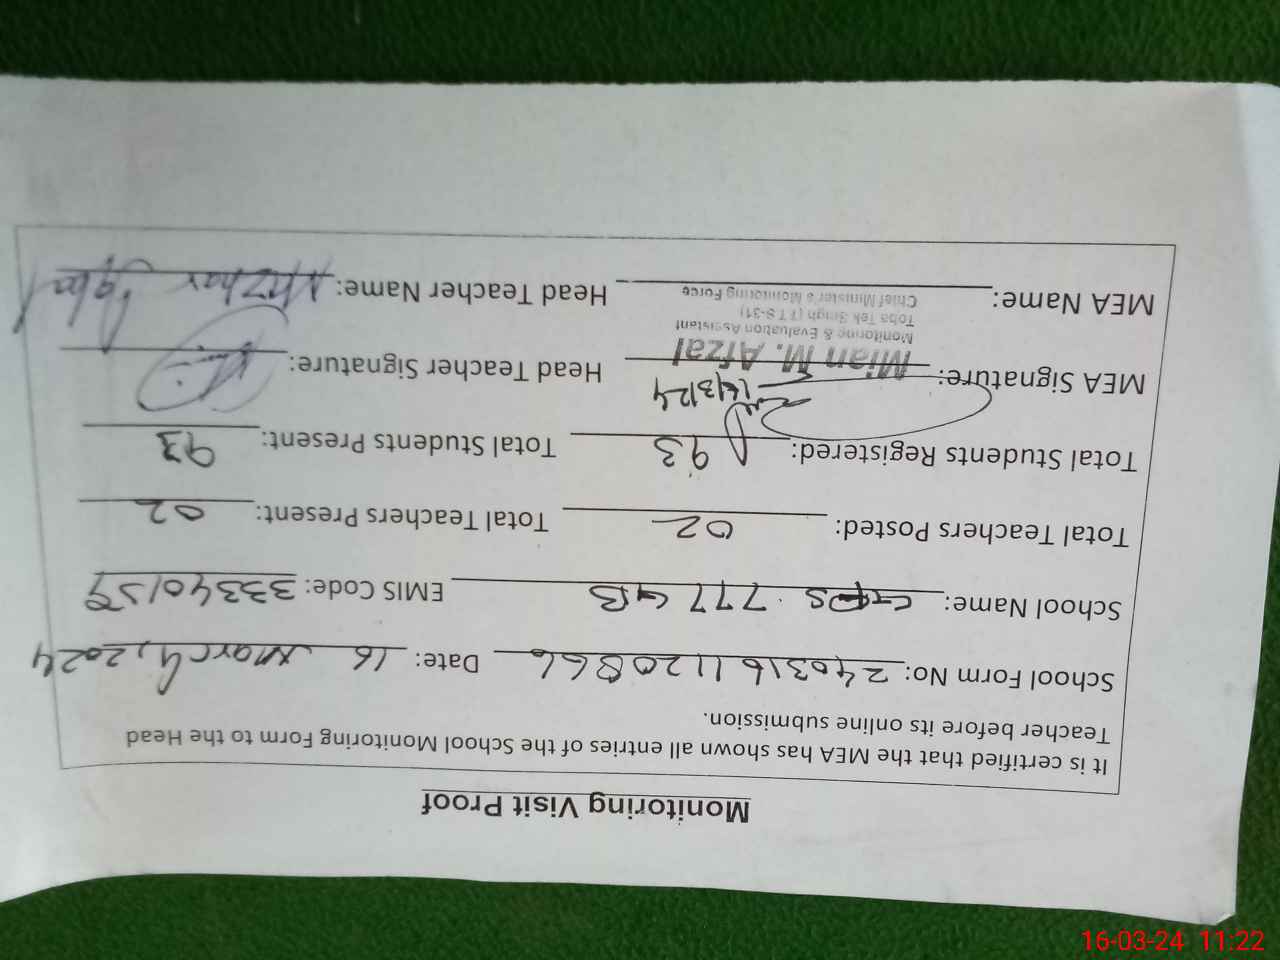 Monitoring Visit Proof
It is certified that the MEA has shown all entries of the School Monitoring Form to the Head
Teacher before its online submission.
School Form No: 240316 1120866 Date: 16 March, 2024
School Name: GPS 777 GB EMIS Code: 33340159
Total Teachers Posted: 02 Total Teachers Present: 02
Total Students Registered: 93 Total Students Present: 93
MEA Signature: 16/3/24 Head Teacher Signature:
Mian M. Afzal
Monitoring & Evaluation Assistant
Toba Tek Singh (T.T.S-31)
Chief Minister's Monitoring Force
MEA Name: Head Teacher Name: Iqbal
16-03-24 11:22